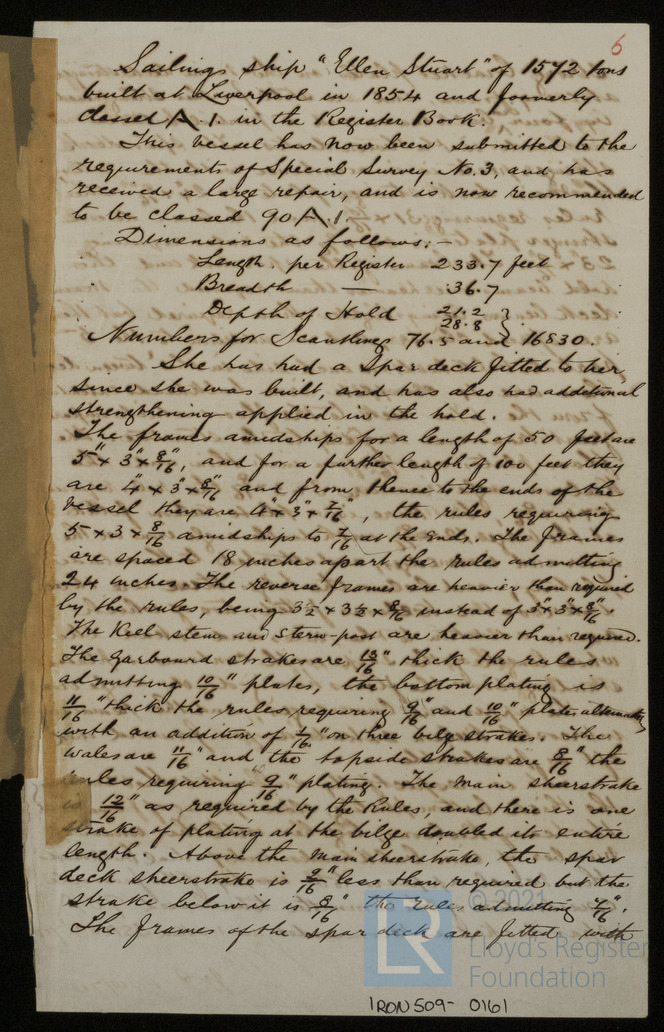 6
Sailing ship "Ellen Stuart" of 1572 tons
built at Liverpool in 1854 and formerly
classed A.1. in the Register Book.
This vessel has now been submitted to the
requirements of Special Survey No.3, and has
received a large repair, and is now recommended
to be classed 90 A.1.
Dimensions as follows:-
Length. per Register 233.7 feet
Breadth — 36.7
Depth of Hold 21.2 }
28.8 }
Numbers for Scantlings 76.5 and 16830.
She has had a Spar deck fitted to her,
since she was built, and has also had additional
strengthening applied in the hold.
The frames amidships for a length of 50 feet are
5" x 3" x 8/16", and for a further length of 100 feet they
are 4" x 3" x 8/16" and from thence to the ends of the
vessel they are 4" x 3" x 7/16, the rules requiring
5 x 3 x 8/16 amidships to 7/16 at the ends. The frames
are spaced 18 inches apart the rules admitting
24 inches. The reverse frames are heavier than required
by the rules, being 3½ x 3½ x 8/16 instead of 3" x 3" x 8/16".
The Keel stem and stern-post are heavier than required.
The Garboard strakes are 13/16" thick the rules
admitting 10/16" plates, the bottom plating is
11/16" thick the rules requiring 9/16" and 10/16" plates alternately
with an addition of 1/16" on three bilge strakes. The
wales are 11/16" and the topside strakes are 8/16" the
rules requiring 9/16" plating. The main sheerstrake
is 12/16" as required by the Rules, and there is one
strake of plating at the bilge doubled its entire
length. Above the main sheerstrake, the spar
deck sheerstrake is 2/16" less than required but the
strake below it is 8/16" the rules admitting 7/16".
The frames of the spar deck are fitted with
© 2021
LR
Lloyd's Register
Foundation
IRON509- 0161